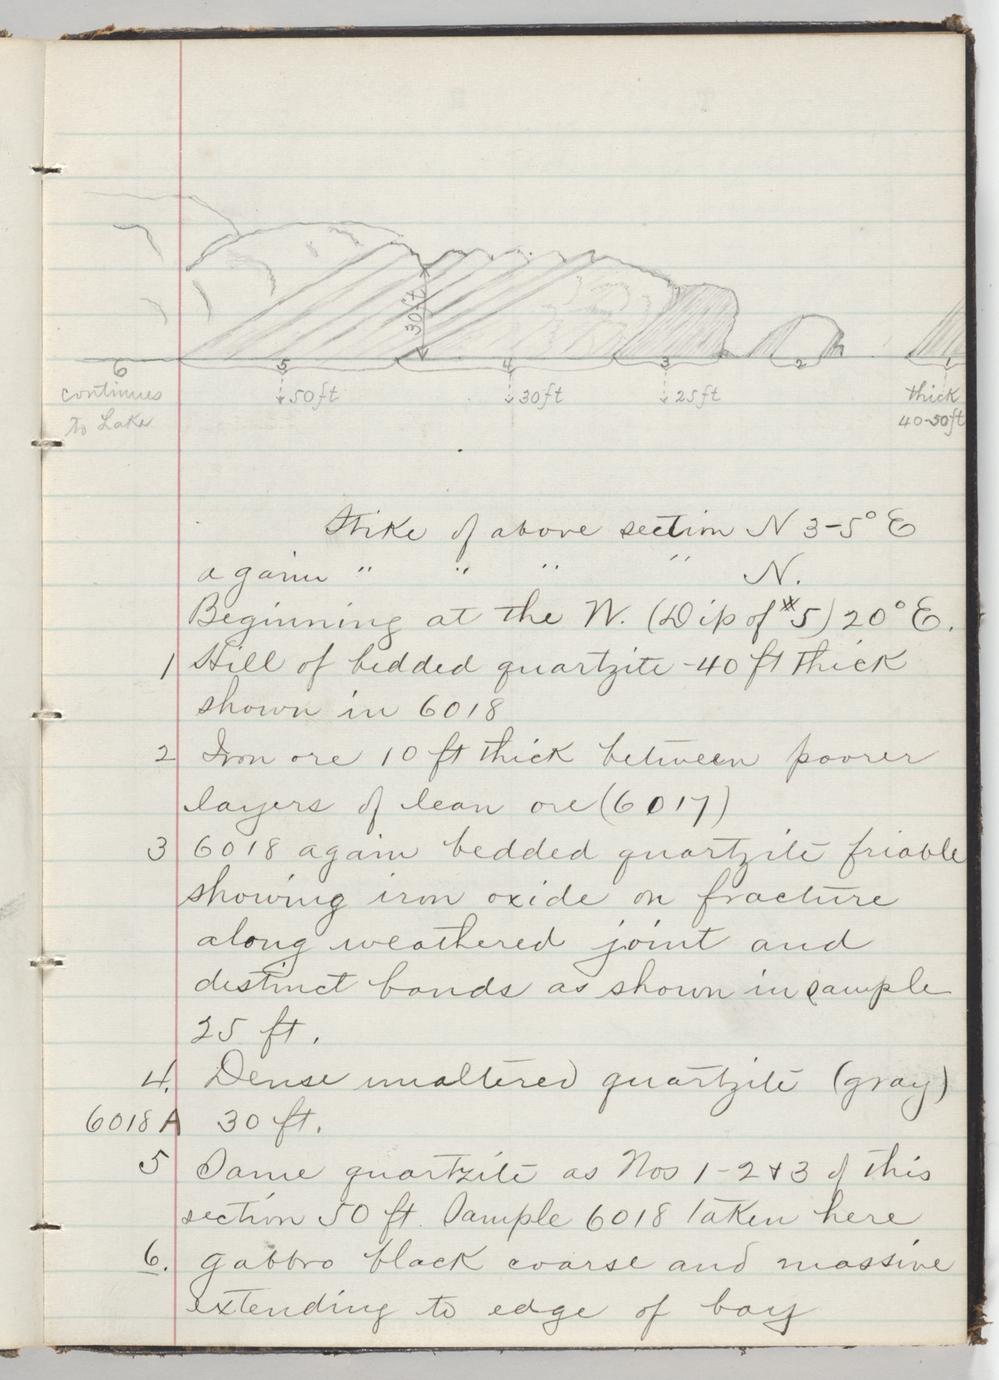 30ft
6 5 4 3 2 1
continues
to Lake
50ft 30ft 25ft thick
40-50ft
Strike of above section N 3-5° E
again " " " " N.
Beginning at the W. (Dip of #5) 20° E.
1 Hill of bedded quartzite -40 ft thick
shown in 6018
2 Iron ore 10 ft thick between poorer
layers of lean ore (6017)
3 6018 again bedded quartzite friable
showing iron oxide on fracture
along weathered joint and
distinct bands as shown in sample
25 ft.
4. Dense unaltered quartzite (gray)
6018A 30 ft.
5 Same quartzite as Nos 1-2 & 3 of this
section 50 ft. Sample 6018 taken here
6. gabbro black coarse and massive
extending to edge of bay